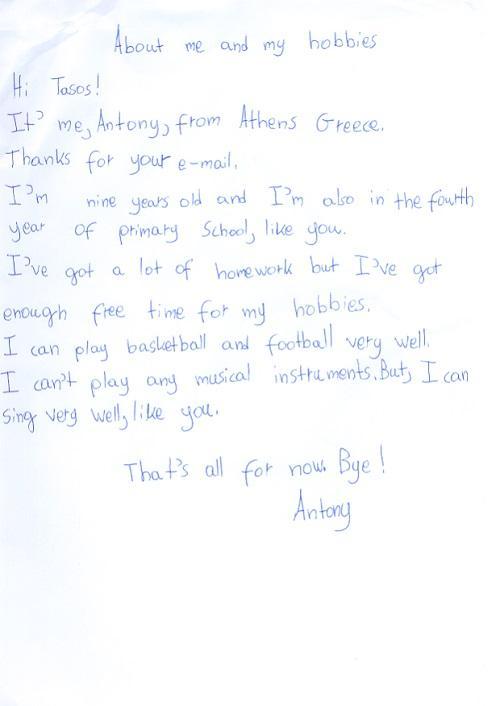 About me and my hobbies
Hi Tasos!
It' me, Antony, from Athens Greece.
Thanks for your e-mail.
I'm nine years old and I'm also in the fourth
year of primary School, like you.
I've got a lot of homework but I've got
enough free time for my hobbies.
I can play basketball and football very well.
I can't play any musical instruments. But, I can
sing very well, like you.
That's all for now. Bye!
Antony